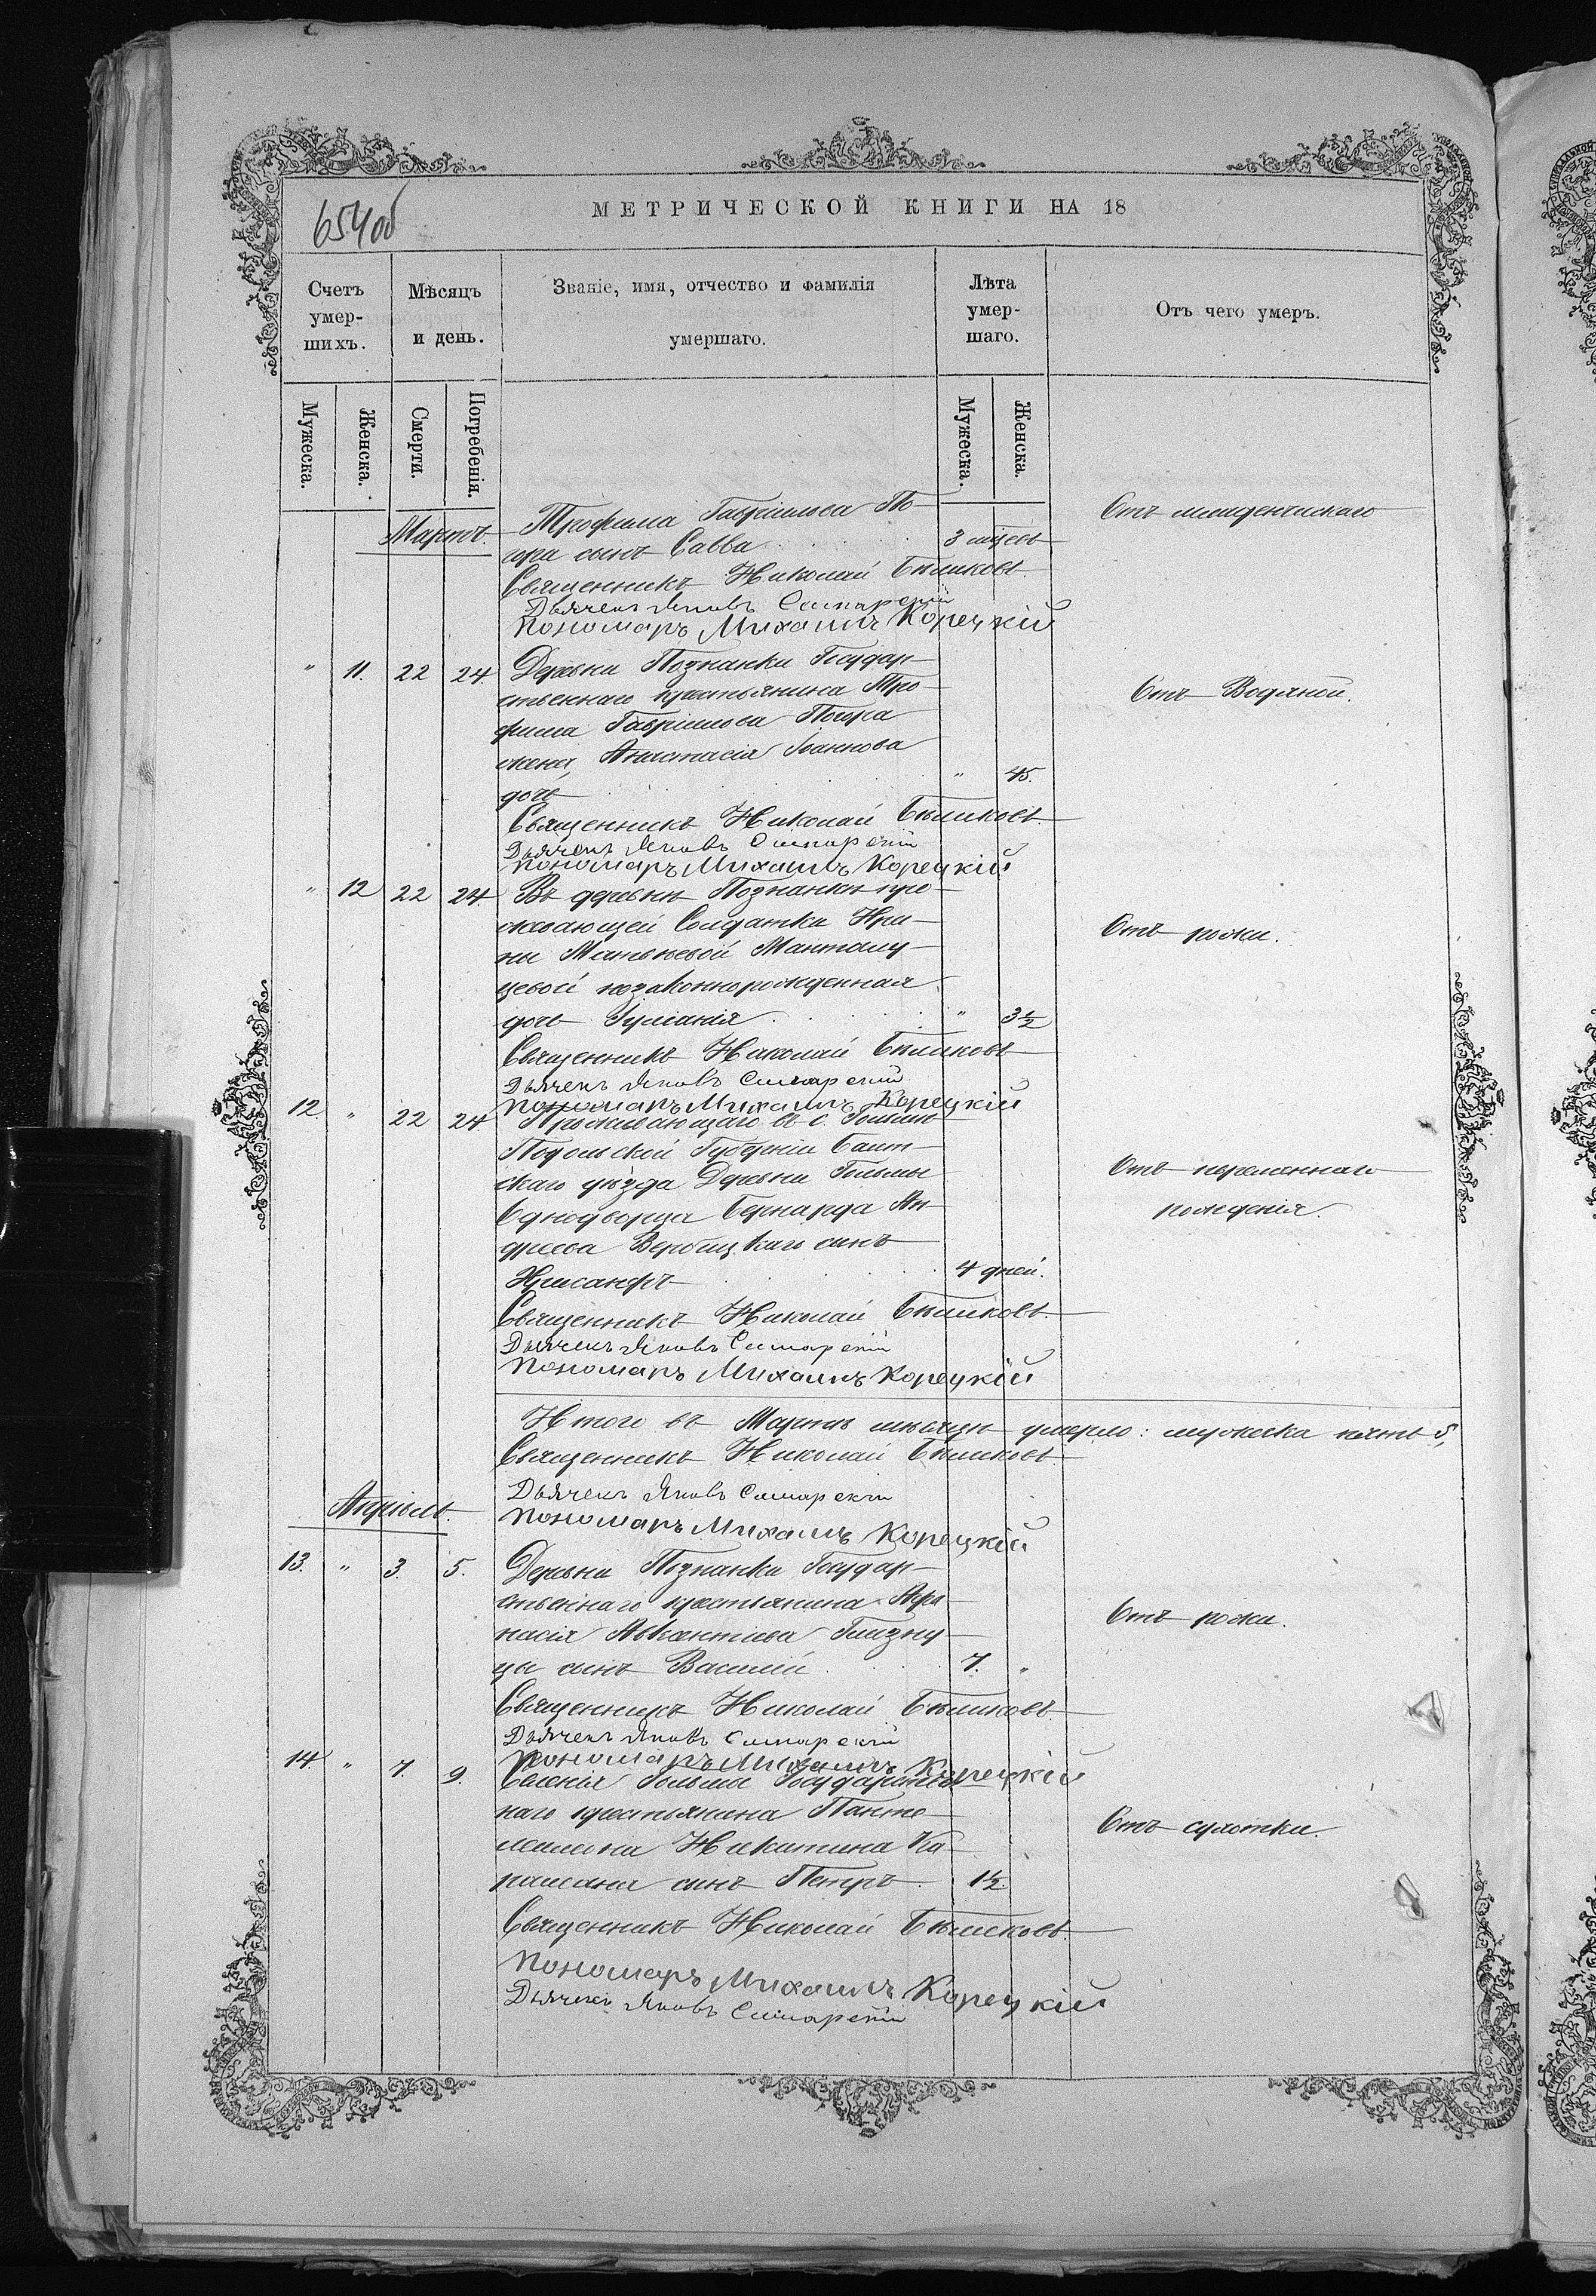 654об
МЕТРИЧЕСКОЙ КНИГИ НА 18
Счетъ умер-шихъ.
Мѣсяцъ и день.
Званіе, имя, отчество и фамилія умершаго.
Лѣта умер-шаго.
Отъ чего умеръ.
Мужеска.
Женска.
Смерти.
Погребенія.
Мужеска.
Женска.
Мартъ.
Трофима Гавріилова По-
гора сынъ Савва 3 мѣсев
Отъ младенчискаго
Священникъ Николай Бѣликовъ.
Дьячекъ Яковъ Самарскій
Пономарь Михаилъ Корецкій
" 11. 22 24. Деревни Познанки Государ-
ственнаго крестьянина Тро-
Отъ Водяной.
фима Гавріилова Погора
жена, Анастасія Іоаннова
дочь " 45.
Священникъ Николай Бѣликовъ.
Дьячекъ Яковъ Самарскій
Пономарь Михаилъ Корецкій
" 12 22 24. Въ деревнѣ Познанкѣ про-
живающей Солдатки Ири-
Отъ рожи.
ны Матвѣевой
цевой незаконнорожденная
дочь Іуліанія " 3½
Священникъ Николай Бѣликовъ
Дьячекъ Яковъ Самарскій
Пономарь Михаилъ Корецкій
12. " 22 24 Проживающаго въ с. Гольмѣ
Подольской Губерніи Балт-
скаго уѣзда Деревни Гольмы
Отъ
рожденія
Однодворца Бернарда Ан-
дреева Вербицкаго сынъ
Хрисанфъ 4 дней.
Священникъ Николай Бѣликовъ.
Дьячекъ Яковъ Самарскій
Пономарь Михаилъ Корецкій
Итого въ Мартѣ мѣсяцѣ умерло: мужеска пять 5,
Священникъ Николай Бѣликовъ
Дьячекъ Яковъ Самарскій
Апрѣль.
Пономарь Михаилъ Корецкій
13. " 3. 5. Деревни Познанки Государ-
ственнаго крестьянина Афа-
Отъ рожи.
насія Авксентіева Глизну-
цы сынъ Василій 7. "
Священникъ Николай Бѣликовъ.
Дьячекъ Яковъ Самарскій
Пономарь Михаилъ Корецкій
14. " 7. 9. Селенія Гольмы Государствен
наго крестьянина Панте-
Отъ сухотки.
леимона Никитина Ка-
сынъ Петръ 1½
Священникъ Николай Бѣликовъ.
Пономарь Михаилъ Корецкій
Дьячекъ Яковъ Самарскій